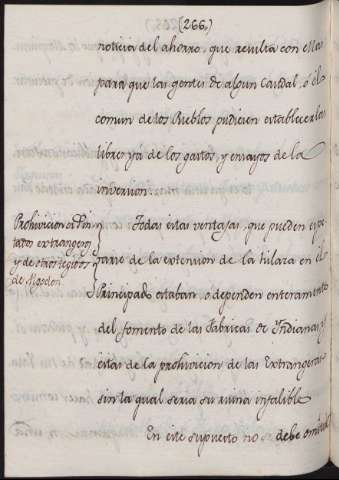 (266.)
noticia del ahorro, que resulta con ellas
para que las gentes de algun Caudal, ó el
comun de los Pueblos pudiesen establecerlas
libres yá de los gastos, y ensayos de la
inversion.
Prohivicion de Pin
tados extrangeros
y de otros tegidos
de Algodon
Todas estas ventajas, que pueden espe
rarse de la extension de la hilaza en el
Principado estaban, o dependen enteramente
del fomento de las fabricas de Indianas, y
estas de la prohivicion de las Extrangeras
sin la qual seria su ruina infalible
En este supuesto no se debe omitir